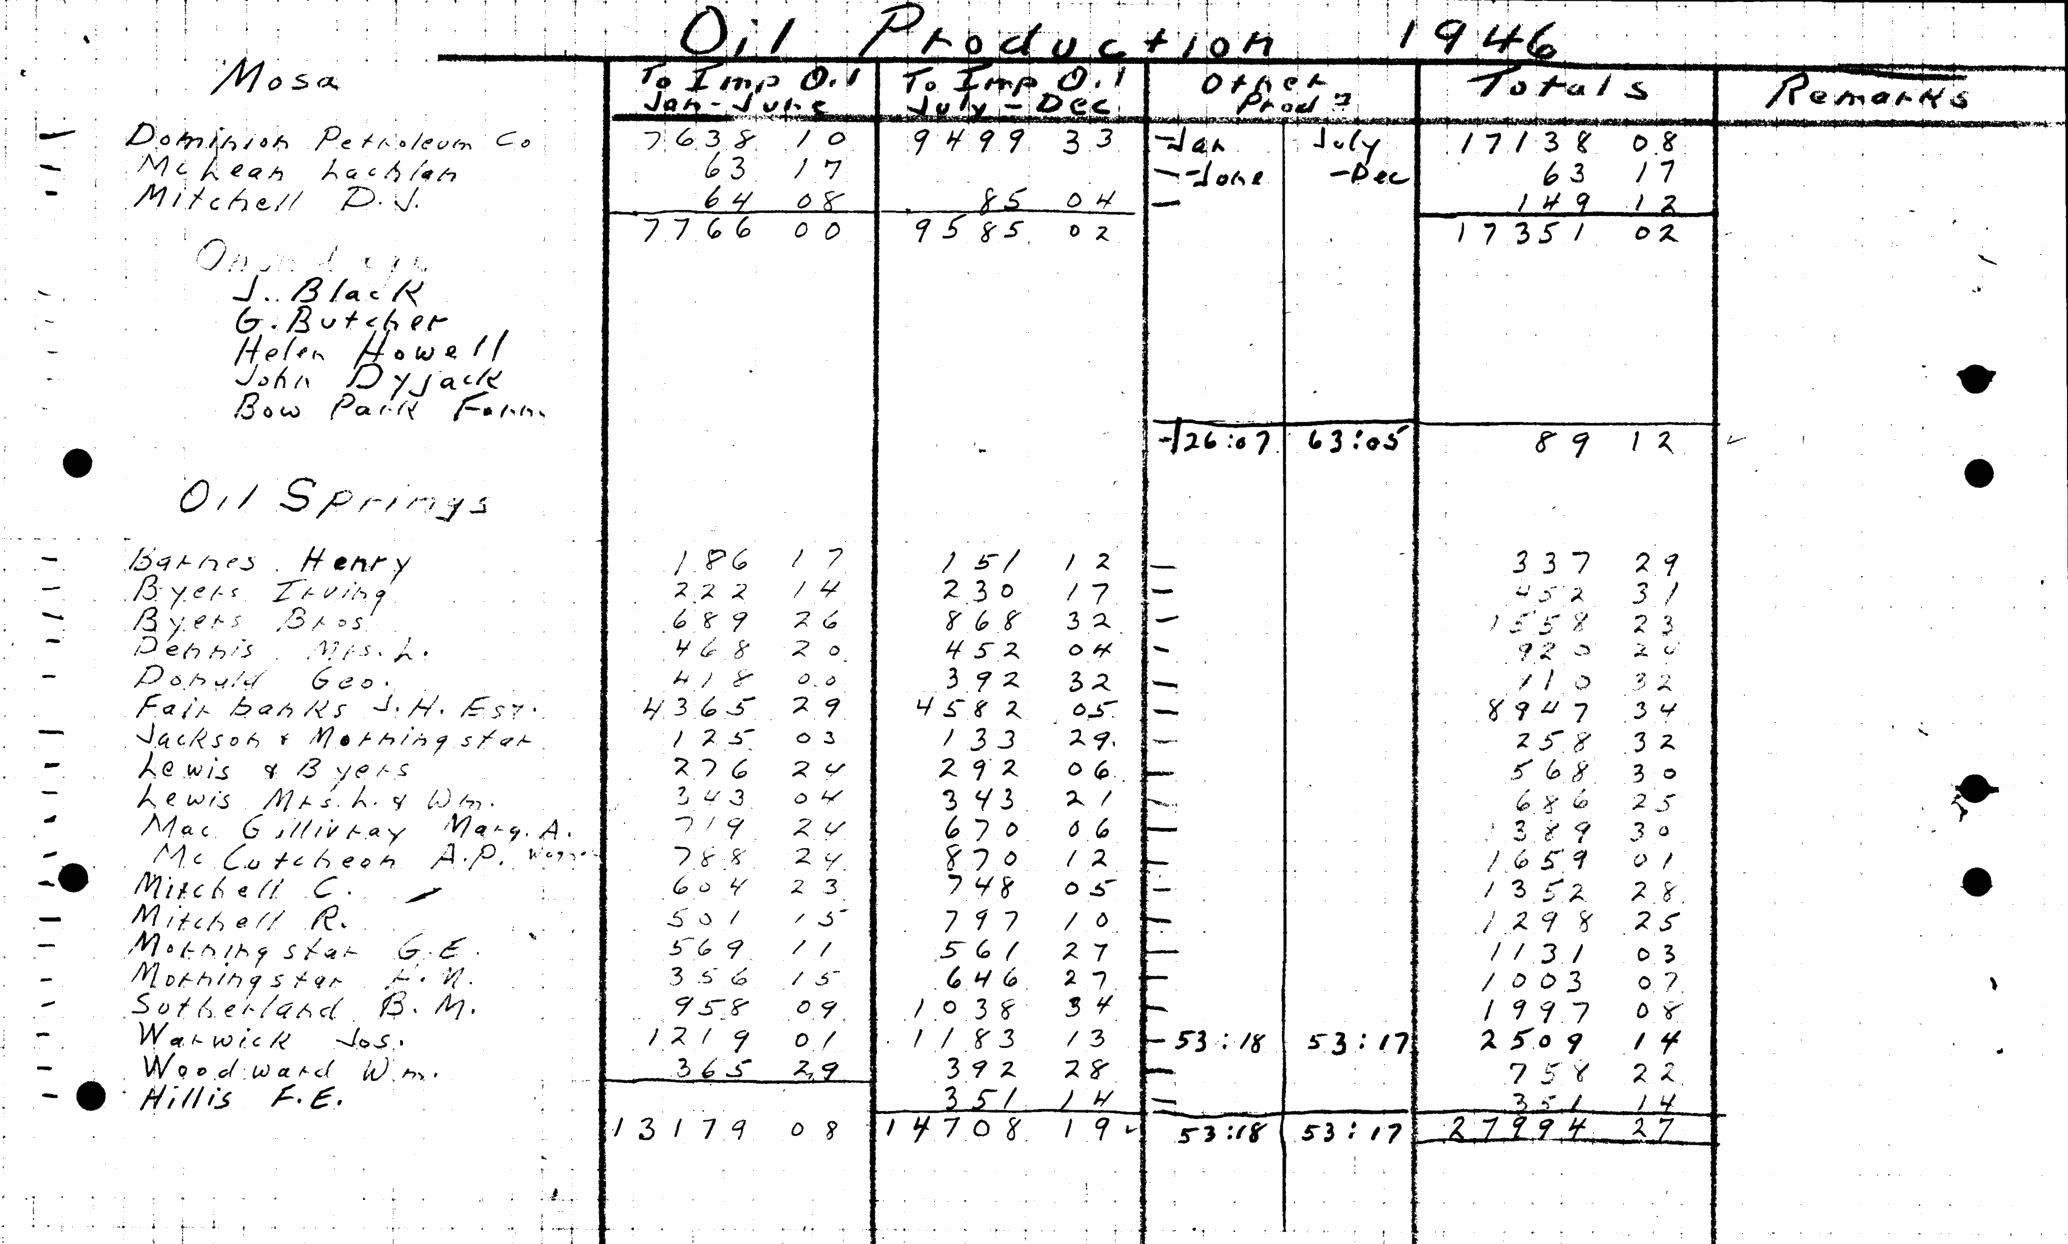 Oil Production 1946
Mosa To Imp Oil Jan-June To Imp Oil July-Dec Other Prod? Totals Remarks
Dominion Petroleum Co 7638 10 9499 33 Jan July 17138 08
McLean Lachlan 63 17 -June -Dec 63 17
Mitchell D.J. 64 08 85 04 149 12
7766 00 9585 02 17351 02
J. Black
G. Butcher
Helen Howell
John Dyjack
Bow Park Farm
26:07 63:05 89 12
Oil Springs
Barnes Henry 186 17 151 12 337 29
Byers Irving 222 14 230 17 452 31
Byers Bros 689 26 868 32 1558 23
Dennis Mrs. L. 468 20 452 04 920 24
Donald Geo. 418 00 392 32 110 32
Fairbanks J.H. Est. 4365 29 4582 05 8947 34
Jackson & Morningstar 125 03 133 29 258 32
Lewis & Byers 276 24 292 06 568 30
Lewis Mrs. L. & Wm. 343 04 343 21 686 25
Mac Gillivray Marg. A. 719 24 670 06 1389 30
McCutcheon A.P. 788 24 870 12 1659 01
Mitchell C. 604 23 748 05 1352 28
Mitchell R. 501 15 797 10 1298 25
Morningstar G.E. 569 11 561 27 1131 03
Morningstar H.N. 356 15 646 27 1003 07
Sutherland B.M. 958 09 1038 34 1997 08
Warwick Jos. 1219 01 1183 13 53:18 53:17 2509 14
Woodward Wm. 365 29 392 28 758 22
Hillis F.E. 351 14 351 14
13179 08 14708 19 53:18 53:17 27994 27